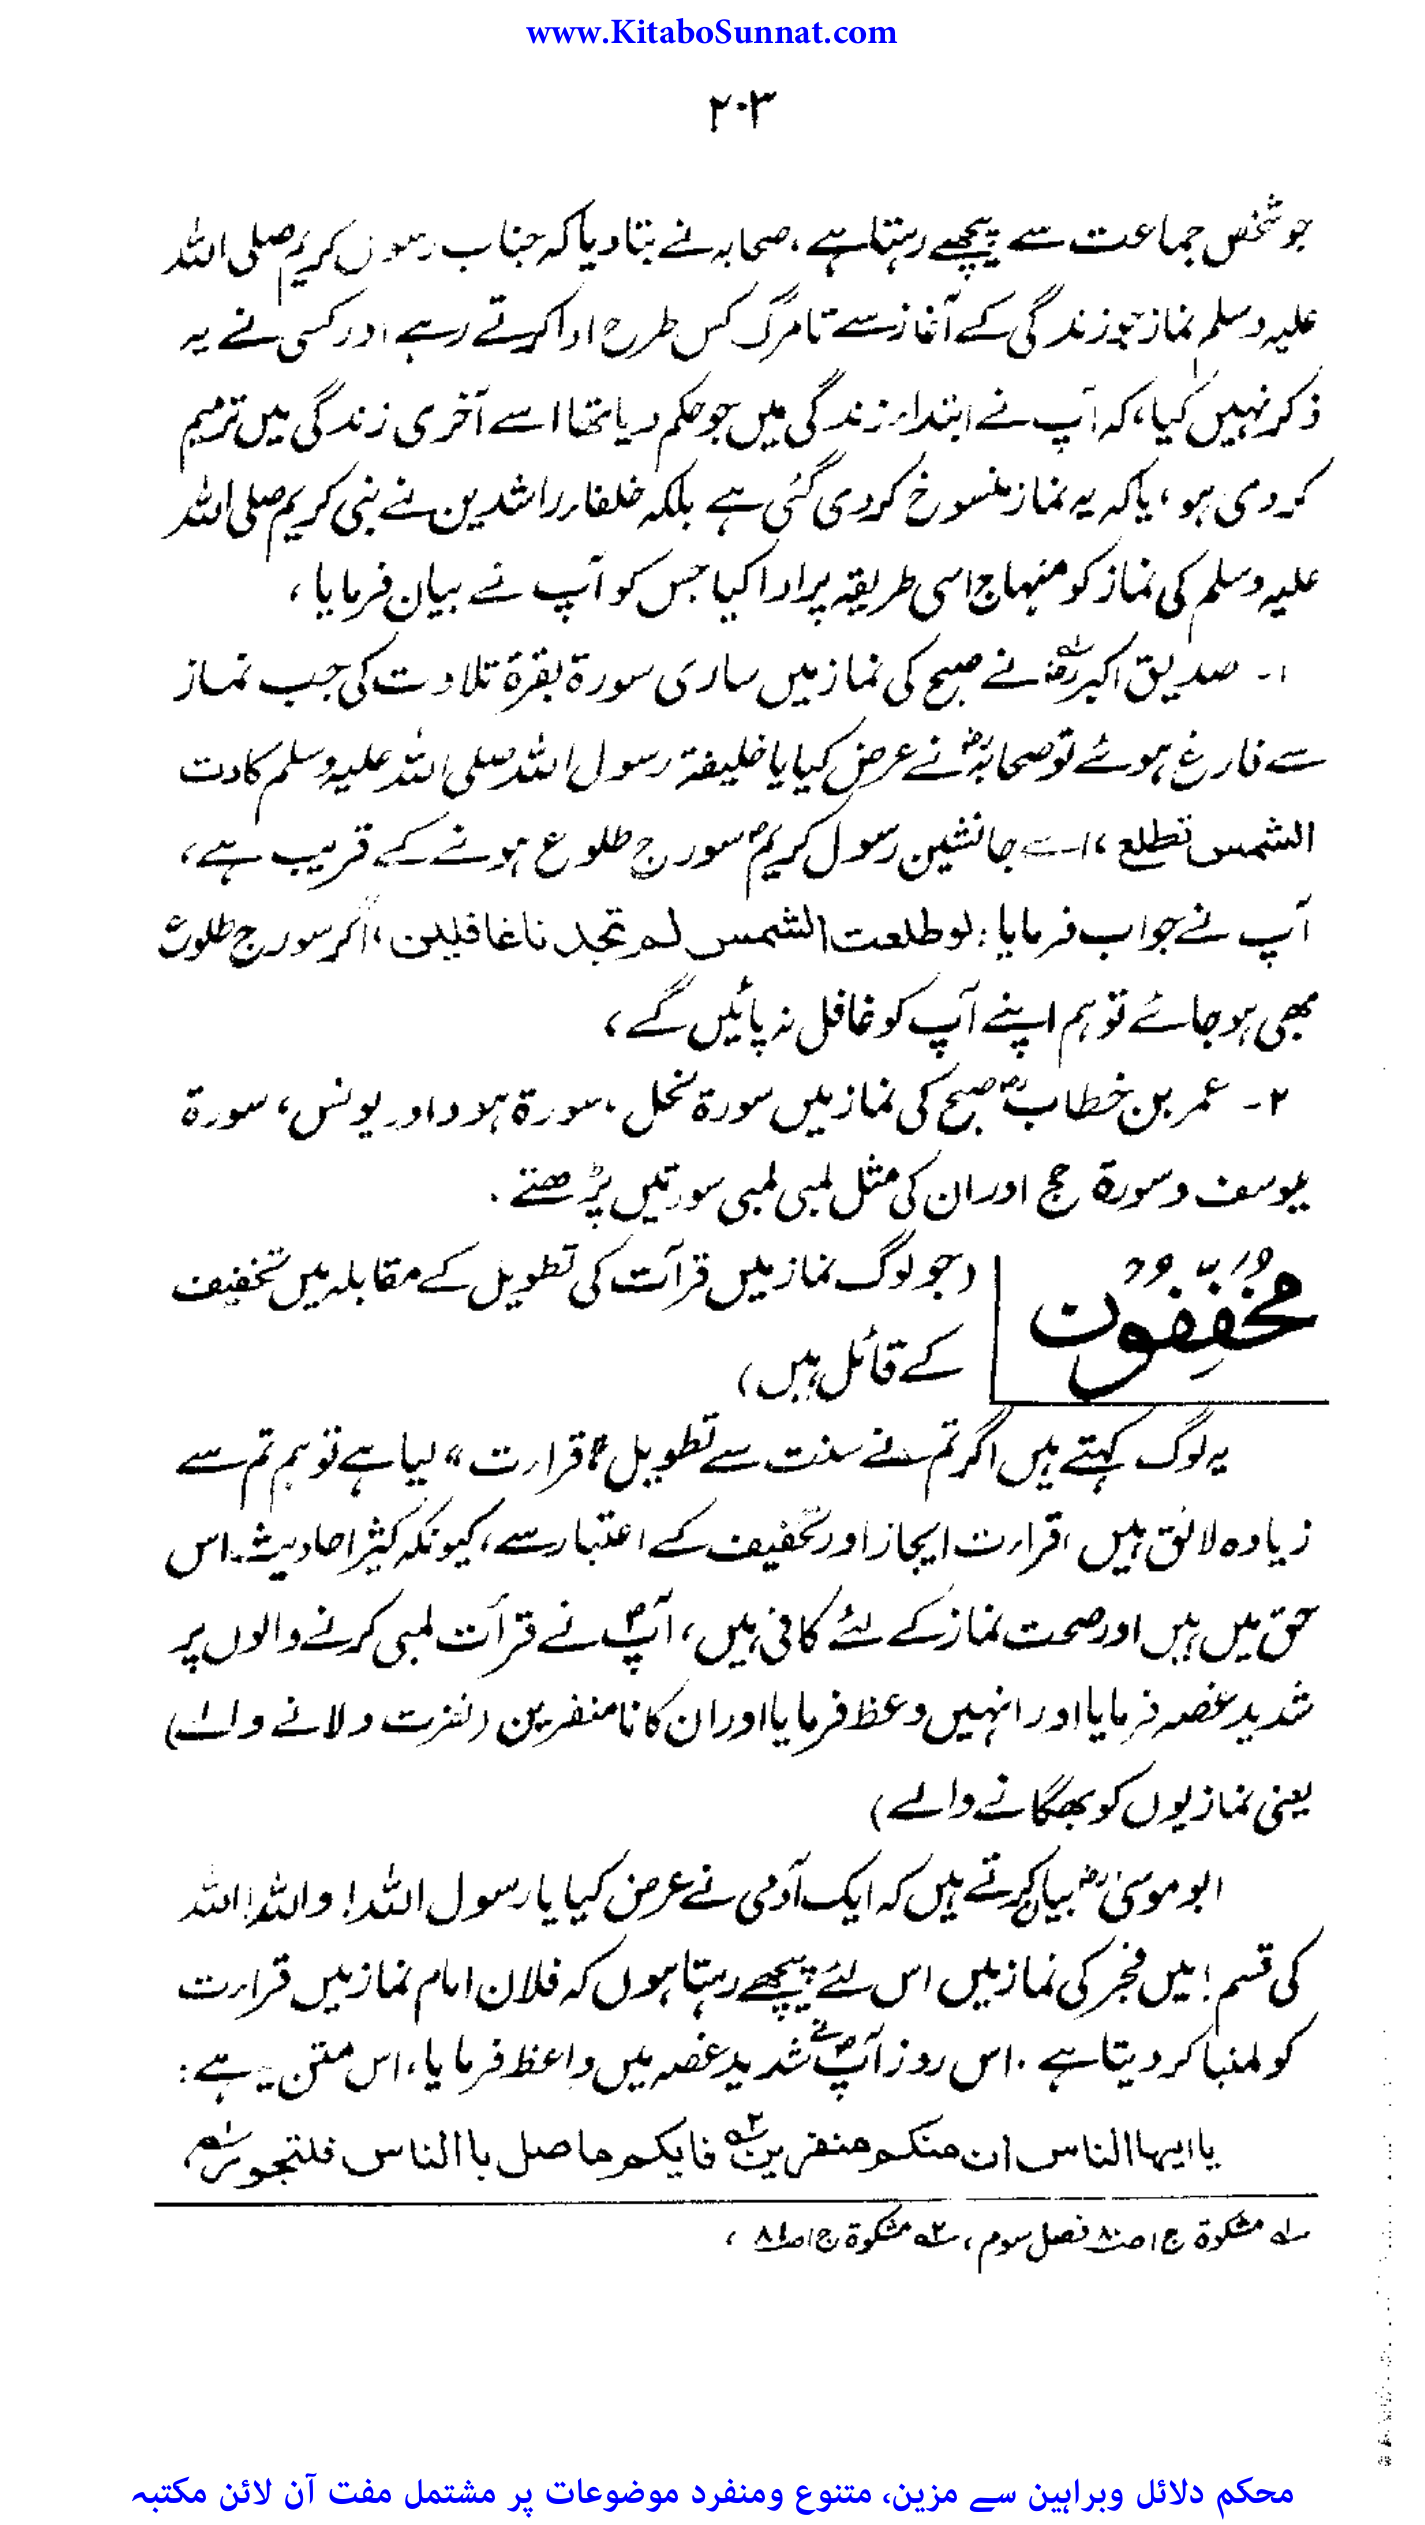 www.KitaboSunnat.com
۲۰۳
جو شخص جماعت سے پیچھے رہتا ہے ، صحابہ نے بتا دیا کہ جناب رسول کریم صلی اللہ
علیہ وسلم نماز جو زندگی کے آغاز سے تا مرگ کس طرح ادا کرتے رہے اور کسی نے یہ
ذکر نہیں کیا، کہ آپ نے ابتداء زندگی میں جو حکم دیا تھا اسے آخری زندگی میں ترمیم
کر دی ہو ، یا کہ یہ نماز منسوخ کر دی گئی ہے بلکہ خلفاء راشدین نے نبی کریم صلی اللہ
علیہ وسلم کی نماز کو منہاج اسی طریقہ پر ادا کیا جس کو آپ نے بیان فرمایا ،
۱۔ صدیق اکبرؓ نے صبح کی نماز میں ساری سورۃ بقرۃ تلاوت کی جب نماز
سے فارغ ہوئے تو صحابہؓ نے عرض کیا یا خلیفۃ رسول اللہ صلی اللہ علیہ وسلم کادت
الشمس تطلع ، اے جانشین رسول کریمؐ سورج طلوع ہونے کے قریب ہے ،
آپ نے جواب فرمایا : لو طلعت الشمس لم تجدنا غافلین ، اگر سورج طلوع
بھی ہو جائے تو ہم اپنے آپ کو غافل نہ پائیں گے ،
۲۔ عمر بن خطابؓ صبح کی نماز میں سورۃ نحل ، سورۃ ہود اور یونس ، سورۃ
یوسف و سورۃ حج اور ان کی مثل لمبی لمبی سورتیں پڑھتے ۔
مُخَفِّفُوْن (جو لوگ نماز میں قرآت کی تطویل کے مقابلہ میں تخفیف
کے قائل ہیں)
یہ لوگ کہتے ہیں اگر تم نے سنت سے تطویل "قراءت" لیا ہے تو ہم تم سے
زیادہ لائق ہیں ، قراءت ایجاز اور تخفیف کے اعتبار سے ، کیونکہ کثیر احادیث اس
حق میں ہیں اور صحت نماز کے لئے کافی ہیں ، آپؐ نے قرآت لمبی کرنے والوں پر
شدید غصہ فرمایا اور انہیں وعظ فرمایا اور ان کا نام منفرین (نفرت دلانے والے)
یعنی نمازیوں کو بھگانے والے)
ابو موسیٰؓ بیان کرتے ہیں کہ ایک آدمی نے عرض کیا یا رسول اللہ! واللہ! اللہ
کی قسم ! میں فجر کی نماز میں اس لئے پیچھے رہتا ہوں کہ فلان امام نماز میں قراءت
کو لمبا کر دیتا ہے ۔ اس روز آپؐ نے شدید غصہ میں واعظ فرمایا ، اس متن یہ ہے :
یا ایہا الناس ان منکم منفرین۲؎ فایکم ما صل با الناس فلتجوز
۱؎ مشکوۃ ج۱ ص۸۰ فصل سوم ، ۲؎ مشکوۃ ج۱ ص۸۱ ،
محکم دلائل وبراہین سے مزین، متنوع ومنفرد موضوعات پر مشتمل مفت آن لائن مکتبہ